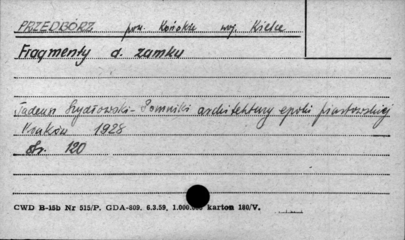 PRZEDBÓRZ pow. Końskie woj. Kielce
Fragmenty d. zamku
Tadeusz Szydłowski - Pomniki architektury epoki piastowskiej
Kraków 1928
str. 120
CWD B-15b Nr 515/P. GDA-809. 6.3.59. 1.000.000 karton 180/V.